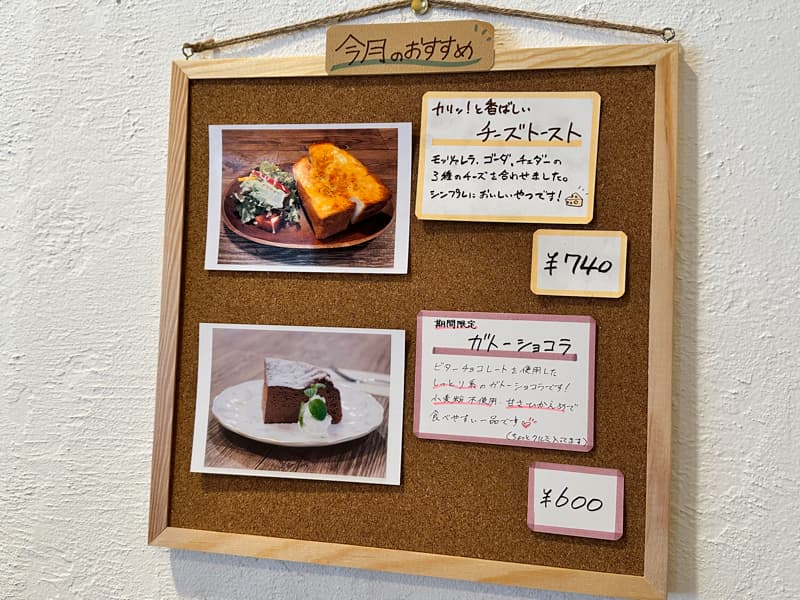 今月のおすすめ
カリッ！と香ばしい
チーズトースト
モッツァレラ、ゴーダ、チェダーの
3種のチーズを合わせました。
シンプルにおいしいやつです！
¥740
期間限定
ガトーショコラ
ビターチョコレートを使用した
しっとり系のガトーショコラです！
小麦粉不使用、甘さひかえめで
食べやすい一品です
(ちょっとクルミ入ってます)
¥600